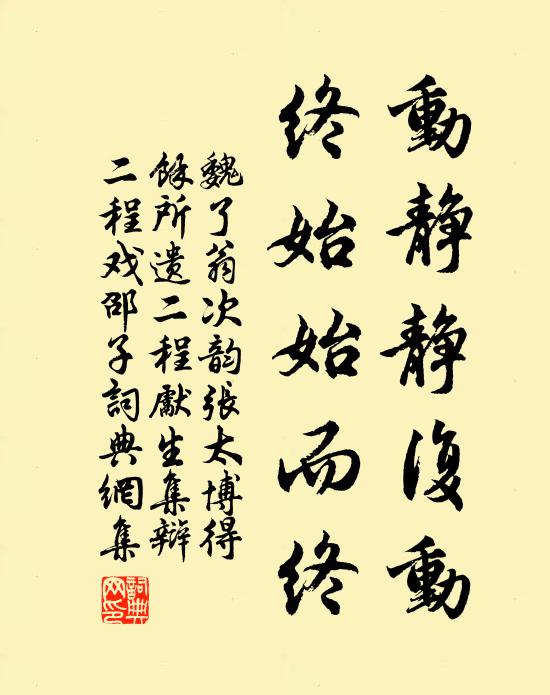 動靜靜復動
終始始而終
魏了翁次韵張太博得
餘所遗二程獻生集辩
二程戏邵子詞典網集